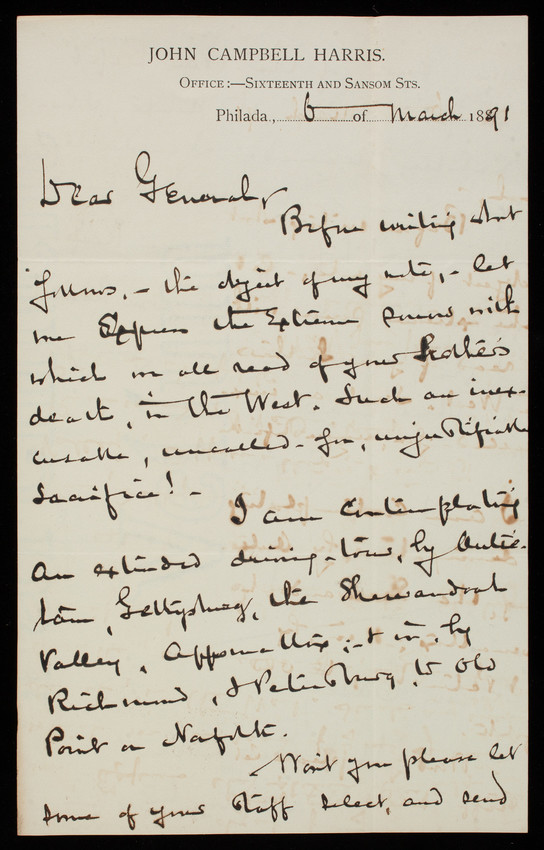 JOHN CAMPBELL HARRIS.
OFFICE:—SIXTEENTH AND SANSOM STS.
Philada., 6 of March 1891
Dear General,
Before writing what
follows, - the object of my note, - let
me Express the Extreme sorrow with
which we all read of your Brother's
death, in the West. Such an inex-
cusable, uncalled-for, unjustifiable
Sacrifice! -
I am Contemplating
an extended driving-tour, by Antie-
tam, Gettysburg, the Shenandoah
Valley, Appomattox; & in, by
Richmond, & Petersburg, to Old
Point or Norfolk.
Won't you please let
some of your Staff select, and send